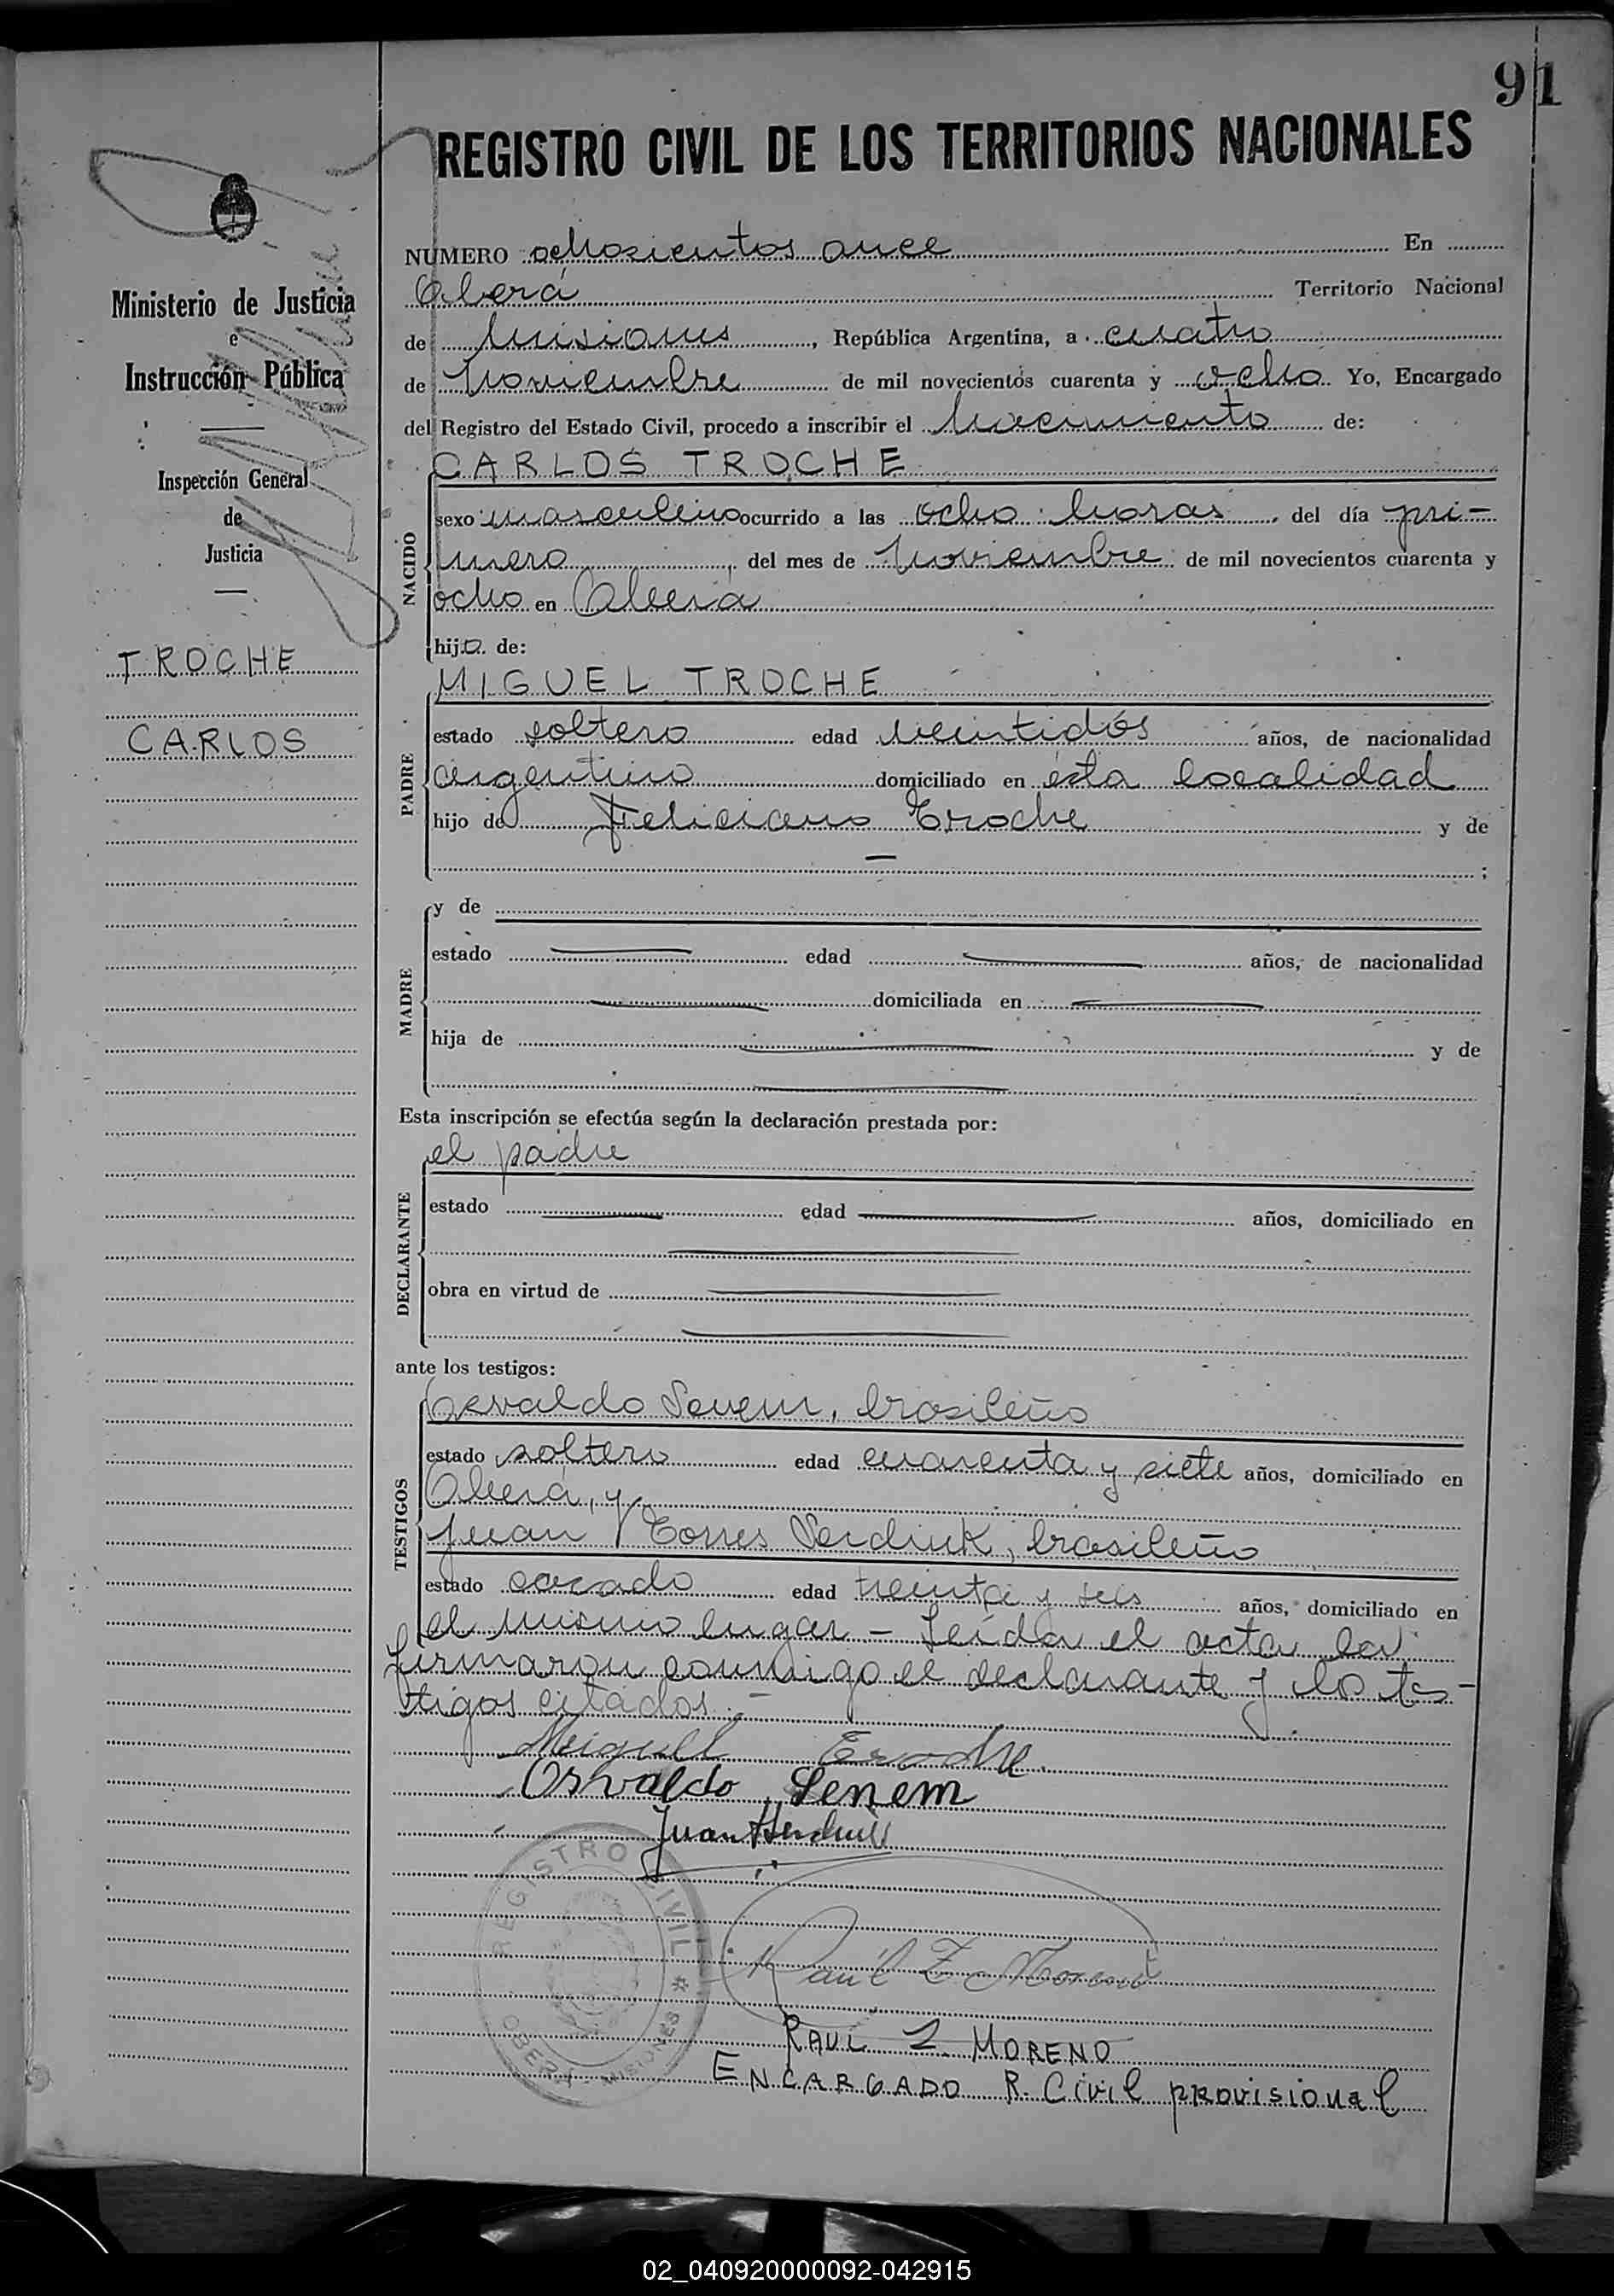 91
REGISTRO CIVIL DE LOS TERRITORIOS NACIONALES
Ministerio de Justicia
e
Instrucción Pública
Inspección General
de
Justicia
TROCHE
CARLOS
NUMERO ochosientos once En
Oberá Territorio Nacional
de Misiones, República Argentina, a cuatro
de Noviembre de mil novecientos cuarenta y ocho Yo, Encargado
del Registro del Estado Civil, procedo a inscribir el Nacimiento de:
CARLOS TROCHE
NACIDO
sexo masculino ocurrido a las ocho horas del día pri-
mero del mes de Noviembre de mil novecientos cuarenta y
ocho en Oberá
hijo de:
MIGUEL TROCHE
PADRE
estado soltero edad veintidós años, de nacionalidad
argentino domiciliado en ésta localidad
hijo de Feliciano Troche y de
— ;
MADRE
y de
estado — edad — años, de nacionalidad
— domiciliada en —
hija de — y de
—
Esta inscripción se efectúa según la declaración prestada por:
el padre
DECLARANTE
estado — edad — años, domiciliado en
—
obra en virtud de —
—
ante los testigos:
TESTIGOS
Osvaldo Senem, brasileño
estado soltero edad cuarenta y siete años, domiciliado en
Oberá, y
Juan Torres, brasileño
estado casado edad treinta y seis años, domiciliado en
el mismo lugar - Leída el acta la
firmaron conmigo el declarante y los tes-
tigos citados.-
Miguel Troche
Osvaldo Senem
Juan
REGISTRO CIVIL
OBERÁ - MISIONES
Raúl Z. Moreno
RAUL Z. MORENO
ENCARGADO R. Civil PROVISIONAL
02_040920000092-042915